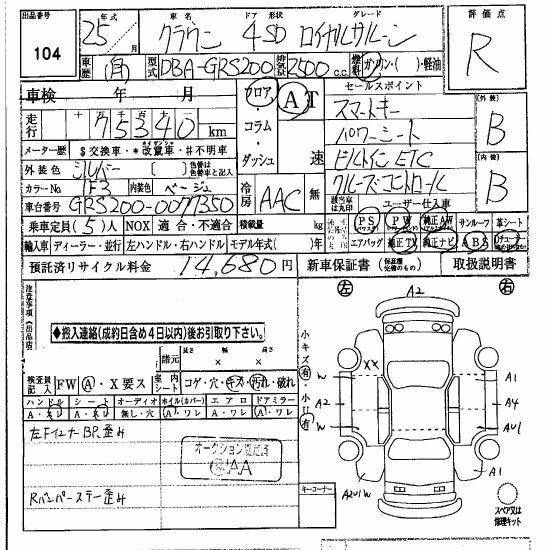 出品番号 年式 車名 ドア 形状 グレード 評価点
104 25年 月 クラウン 4 SD ロイヤルサルーン R
車歴 自 型式 DBA-GRS200 排気量 2500 c.c. 燃料 ガソリン・( )・軽油
車検 年 月 フロア・コラム・ダッシュ AT 速 セールスポイント
走行 十 万 千 百 十 75340 km スマートキー (外装) B
メーター歴 $交換車・*改竄車・#不明車 パワーシート
外装色 シルバー [ ] 色替は色替車と記入 ビルトイン ETC (内装) B
カラーNo. 1F3 内装色 ベージュ 冷房 AAC 無 該当装備は丸印 クルーズコントロール
車台番号 GRS200-0077350 ユーザー仕入車
乗車定員(5)人 NOX 適合・不適合 積載量 kg PS PW 純正AW サンルーフ 革シート
輸入車 ディーラー・並行 左ハンドル・右ハンドル モデル年式( )年 エアバッグ 純正TV 純正ナビ ABS
預託済リサイクル料金 14,680円 新車保証書 (保証継承可能のもの) 取扱説明書
注意事項(出品店) 左 A2 右
◆搬入連絡(成約日含め4日以内)後お引取り下さい。
諸元 長さ × 幅 × 高さ
小キズ有・小凹有
検査員記入 FW A・X要ス 車内シート コゲ・穴・キズ・汚れ・破れ
ハンドル シート オーディオ ホイル(カバー) エアロ ドアミラー
A・ス A・ス 無し・穴 A・ワレ A・ワレ A・ワレ
XX
W A1
A2 A4
W AU1
左FインナーBP歪み
オークション鑑定済
AA
A1
Rバンパーステー歪み キーコーナー A2U1W
スペア又は修理キット